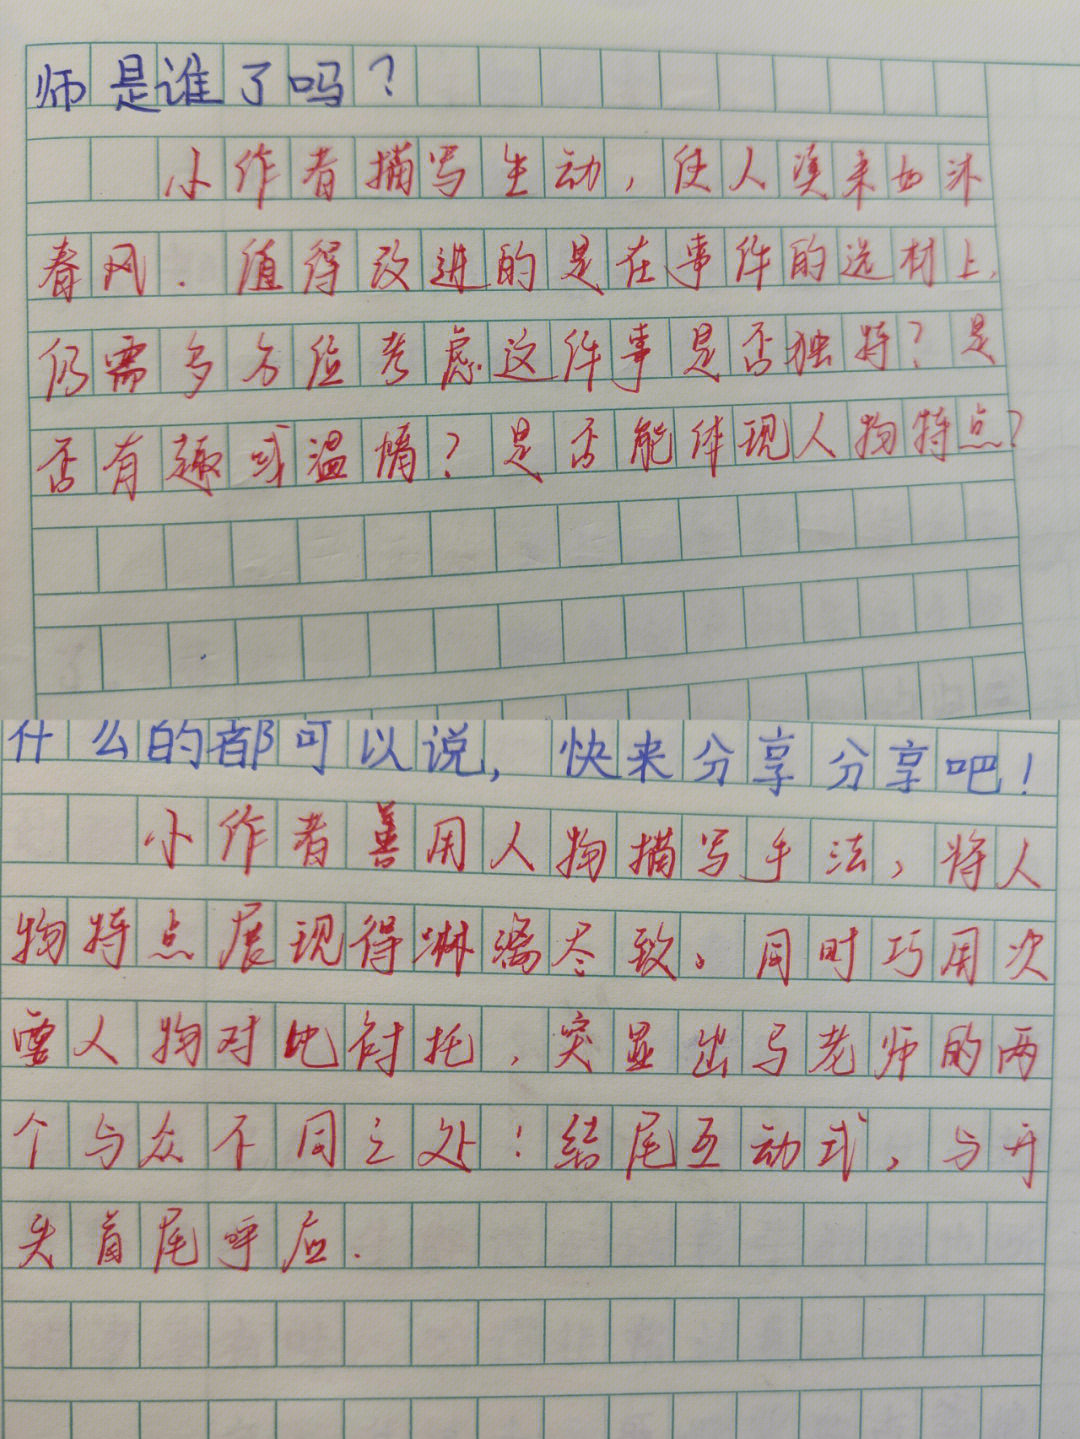 师是谁了吗？
小作者描写生动，使人读来如沐
春风．值得改进的是在事件的选材上，
仍需多方位考虑这件事是否独特？是
否有趣或温情？是否能体现人物特点？
什么的都可以说，快来分享分享吧！
小作者善用人物描写手法，将人
物特点展现得淋漓尽致。同时巧用次
要人物对比衬托，突显出马老师的两
个与众不同之处！结尾互动式，与开
头首尾呼应．